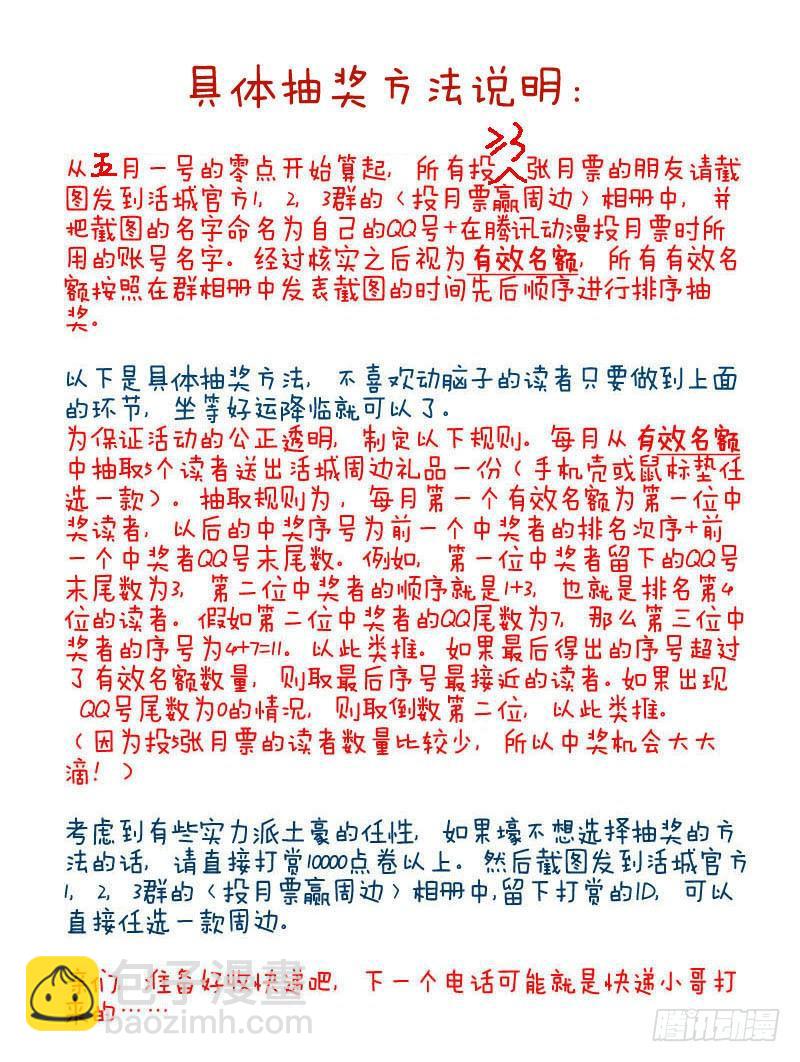 具体抽奖方法说明：
从五月一号的零点开始算起，所有投≥3张月票的朋友请截
图发到活城官方1，2，3群的（投月票赢周边）相册中，并
把截图的名字命名为自己的QQ号+在腾讯动漫投月票时所
用的账号名字。经过核实之后视为有效名额，所有有效名
额按照在群相册中发表截图的时间先后顺序进行排序抽
奖。
以下是具体抽奖方法，不喜欢动脑子的读者只要做到上面
的环节，坐等好运降临就可以了。
为保证活动的公正透明，制定以下规则。每月从有效名额
中抽取5个读者送出活城周边礼品一份（手机壳或鼠标垫任
选一款）。抽取规则为，每月第一个有效名额为第一位中
奖读者，以后的中奖序号为前一个中奖者的排名次序+前
一个中奖者QQ号末尾数。例如，第一位中奖者留下的QQ号
末尾数为3，第二位中奖者的顺序就是1+3，也就是排名第4
位的读者。假如第二位中奖者的QQ尾数为7，那么第三位中
奖者的序号为4+7=11。以此类推。如果最后得出的序号超过
了有效名额数量，则取最后序号最接近的读者。如果出现
QQ号尾数为0的情况，则取倒数第二位，以此类推。
（因为投5张月票的读者数量比较少，所以中奖机会大大
滴！）
考虑到有些实力派土豪的任性，如果壕不想选择抽奖的方
法的话，请直接打赏10000点卷以上。然后截图发到活城官方
1，2，3群的（投月票赢周边）相册中，留下打赏的ID，可以
直接任选一款周边。
亲们，准备好收快递吧，下一个电话可能就是快递小哥打
来的……
包子漫畫
baozimh.com
腾讯动漫